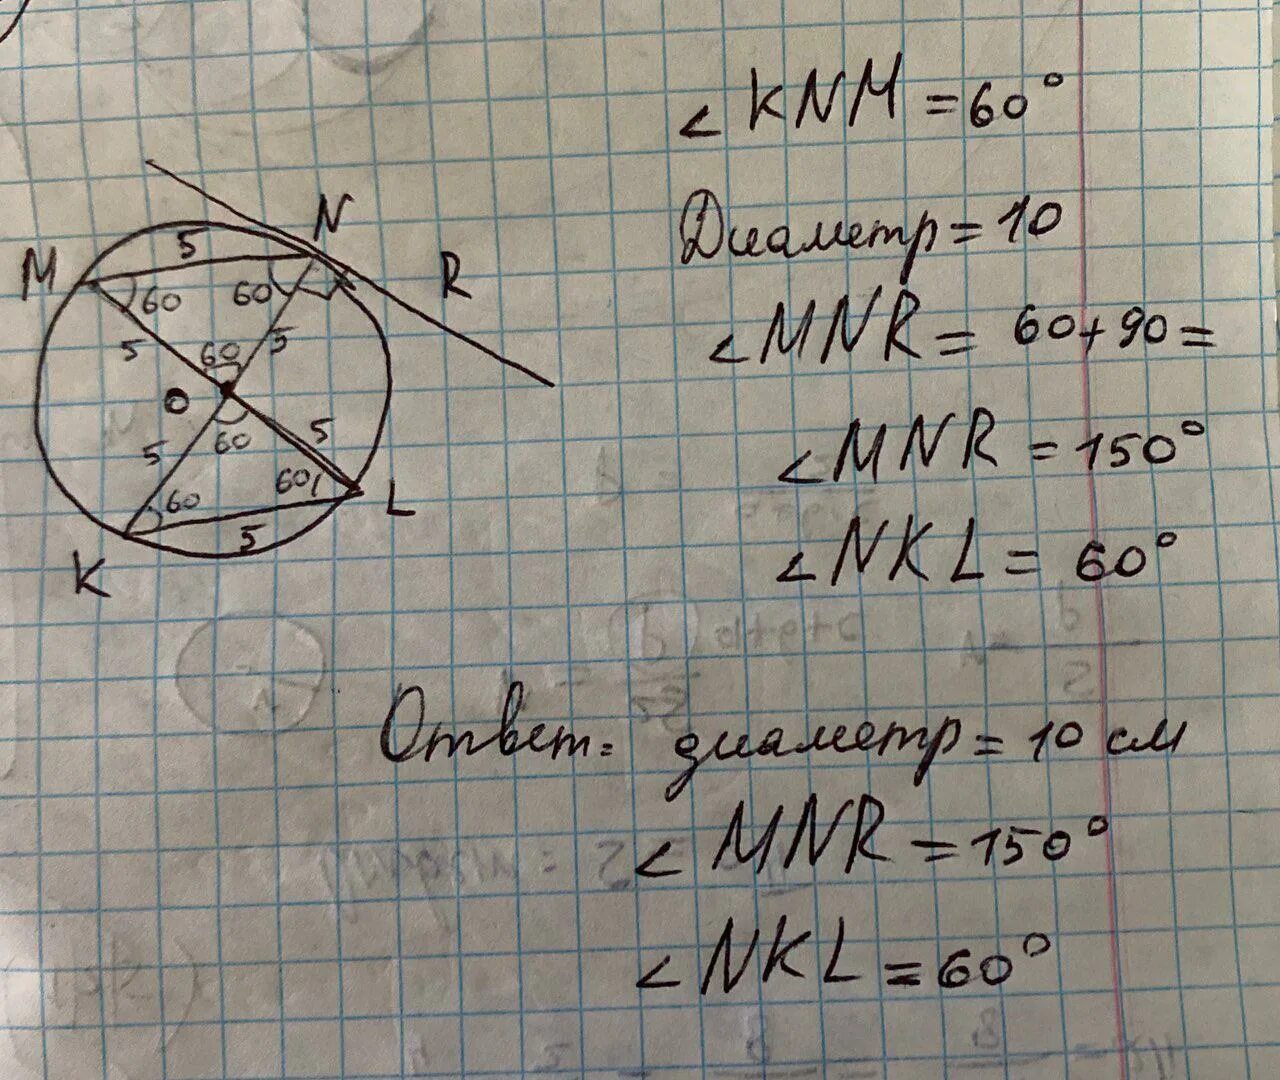 ∠KNM = 60°
Диаметр = 10
∠MNR = 60+90=
∠MNR = 150°
∠NKL = 60°
M
N
R
5
60
60
5
60
5
O
60
5
5
60
60
5
L
K
Ответ: диаметр = 10 см
∠MNR = 150°
∠NKL = 60°